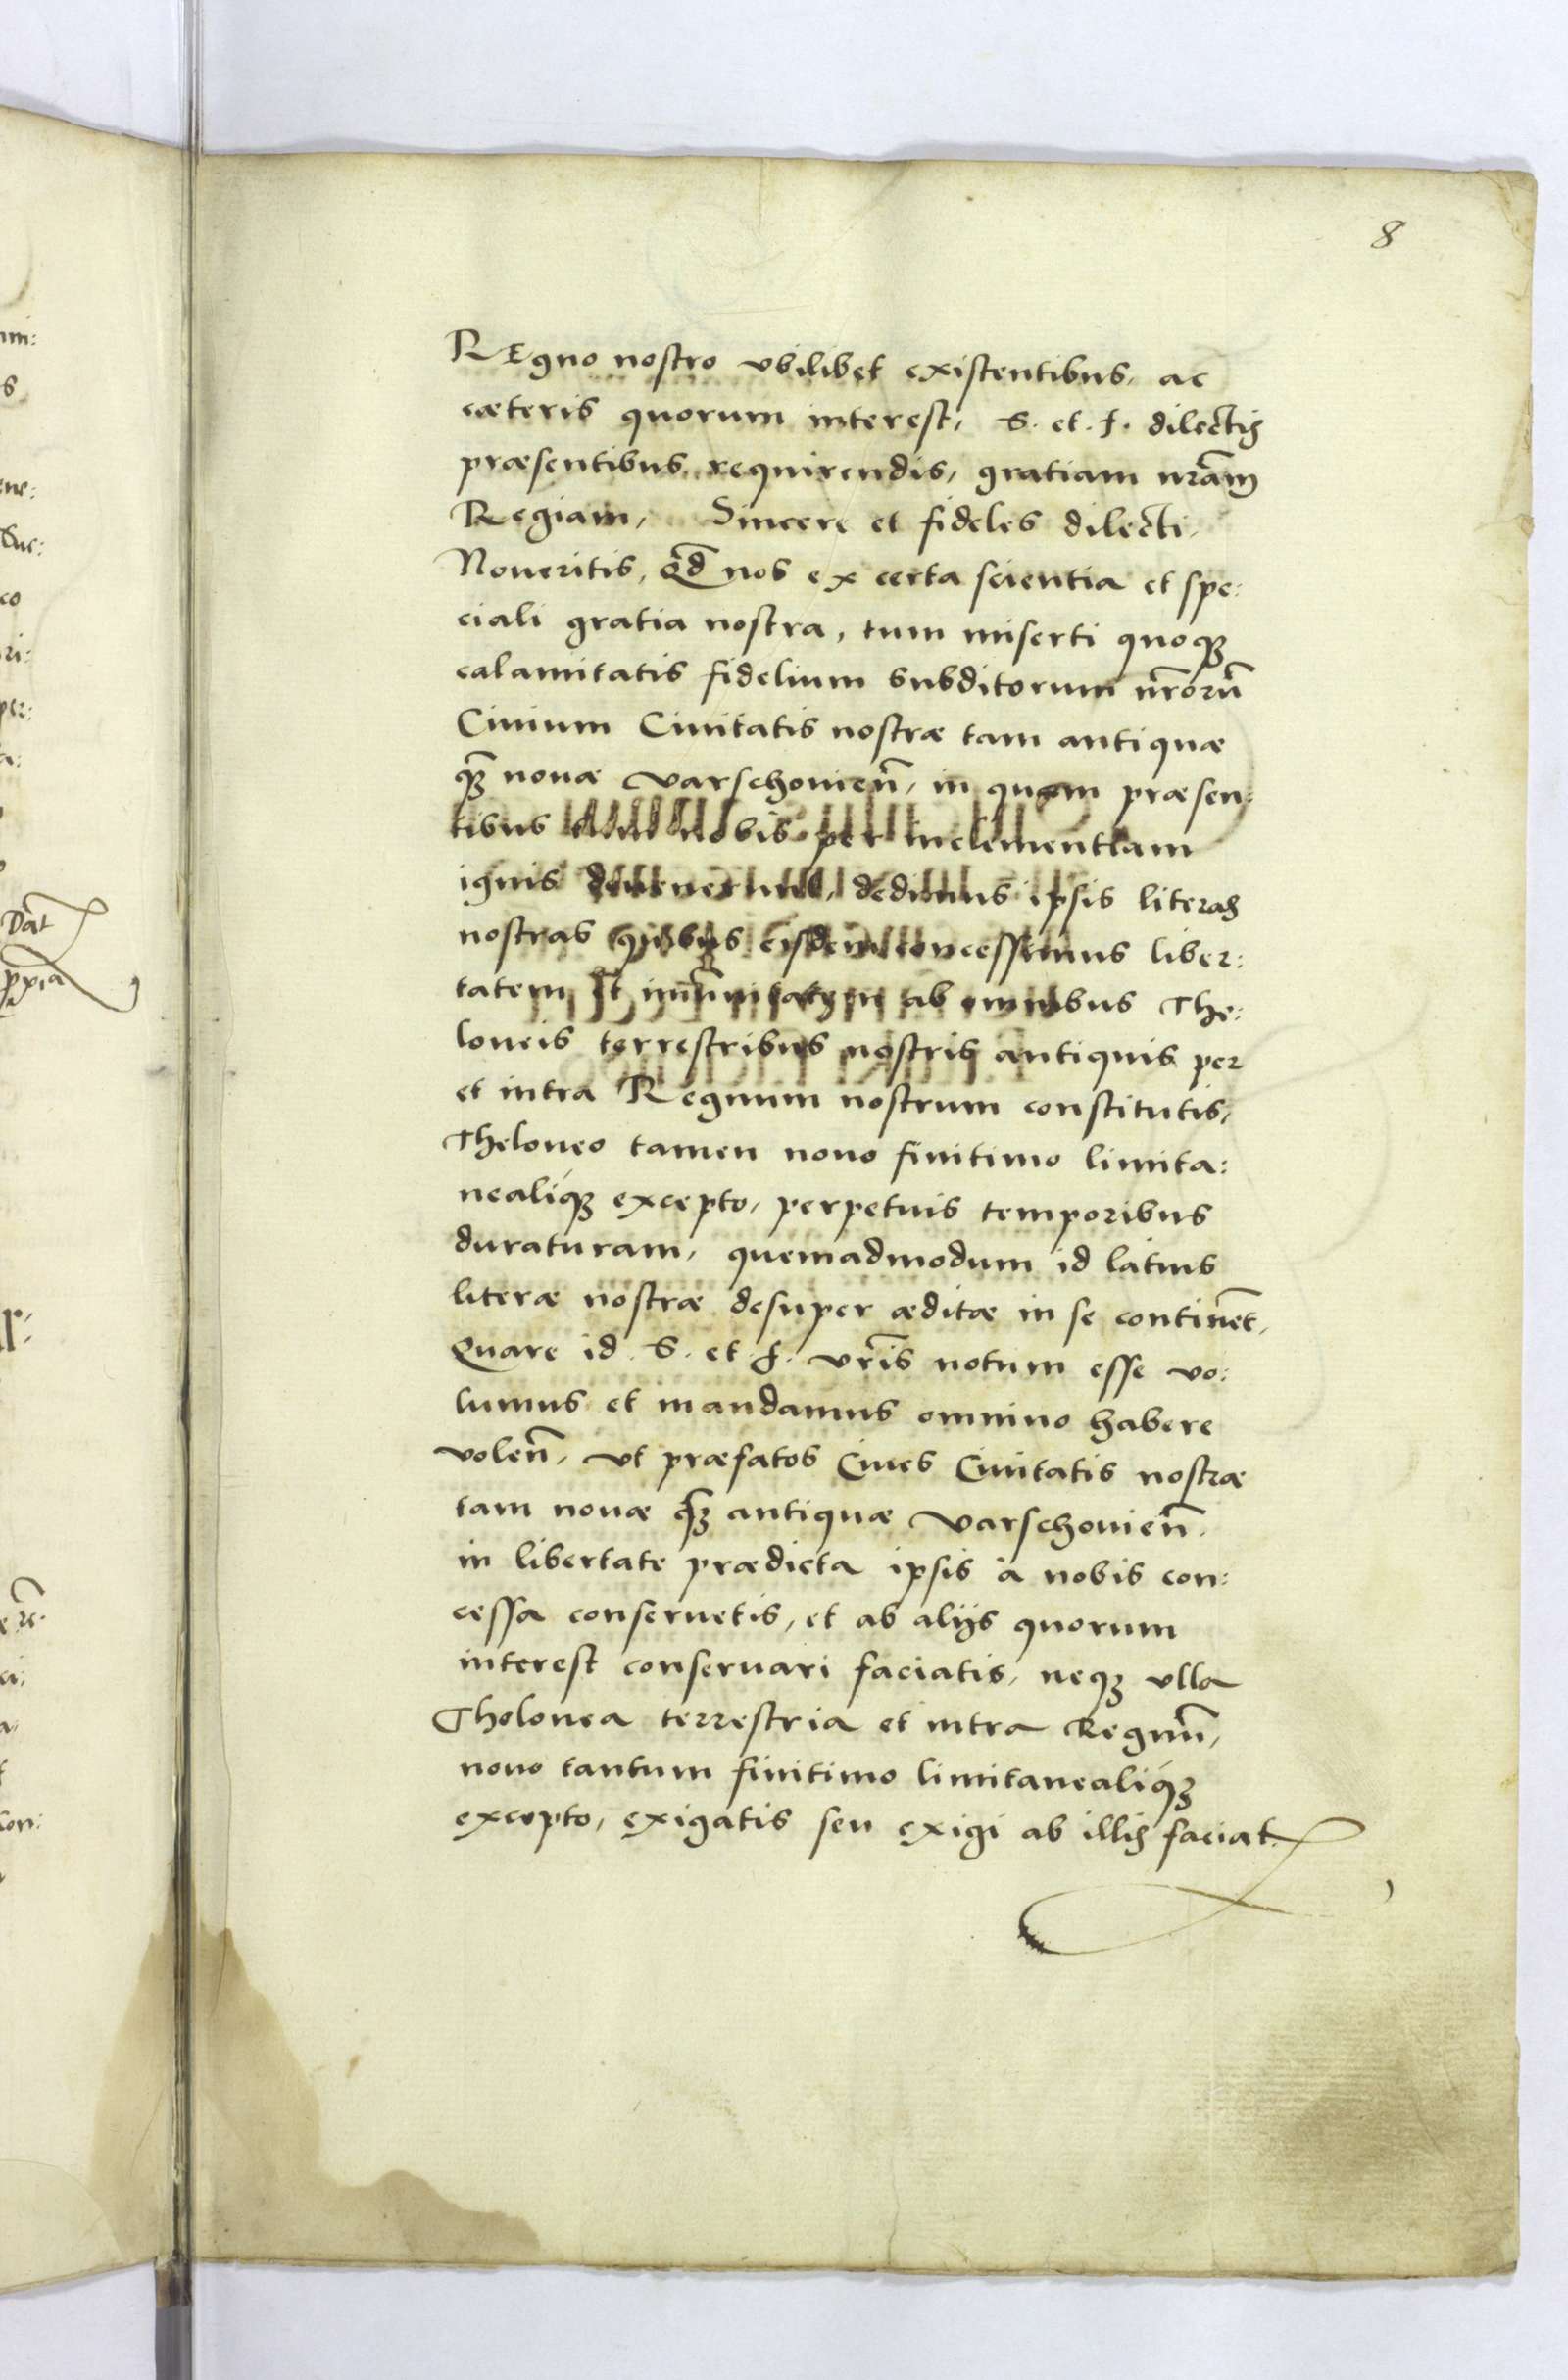 8
REgno nostro vbilibet existentibus, ac
cæteris quorum interest, S. et. f. dilectis
præsentibus requirendis, gratiam nr̃am
Regiam, Sincere et fideles dilecti,
Noueritis, Qd̃ nos ex certa scientia et spe:
ciali gratia nostra, tum miserti quoqꝫ
calamitatis fidelium subditorum nr̃orũ
Ciuium Ciuitatis nostræ tam antiquæ
qꝫ̃ nouæ Varschouieñ, in quam præsen:
tibus nobis per inclementiam
ignis deuenerunt, dedimus ipsis literas
nostras quibus eisdem concessimus liber:
tatem et im̃unitatem ab omnibus The:
loneis terrestribus nostris antiquis per
et intra Regnum nostrum constitutis,
Theloneo tamen nouo finitimo limita:
nealiqꝫ excepto, perpetuis temporibus
duraturam, quemadmodum id latius
literæ nostræ desuper æditæ in se contineñt,
Quare id S. et. f. vr̃is notum esse vo:
lumus et mandamus omnino habere
voleñ, vt præfatos Ciues Ciuitatis nostræ
tam nouæ qꝫ̃ antiquæ Varschouieñ,
in libertate prædicta ipsis à nobis con:
cessa conseruetis, et ab alijs quorum
interest conseruari faciatis, neqꝫ vlla
Thelonea terrestria et intra Regnũ,
nouo tantum finitimo limitanealiqꝫ
excepto, exigatis seu exigi ab illis faciat.
Dat̃